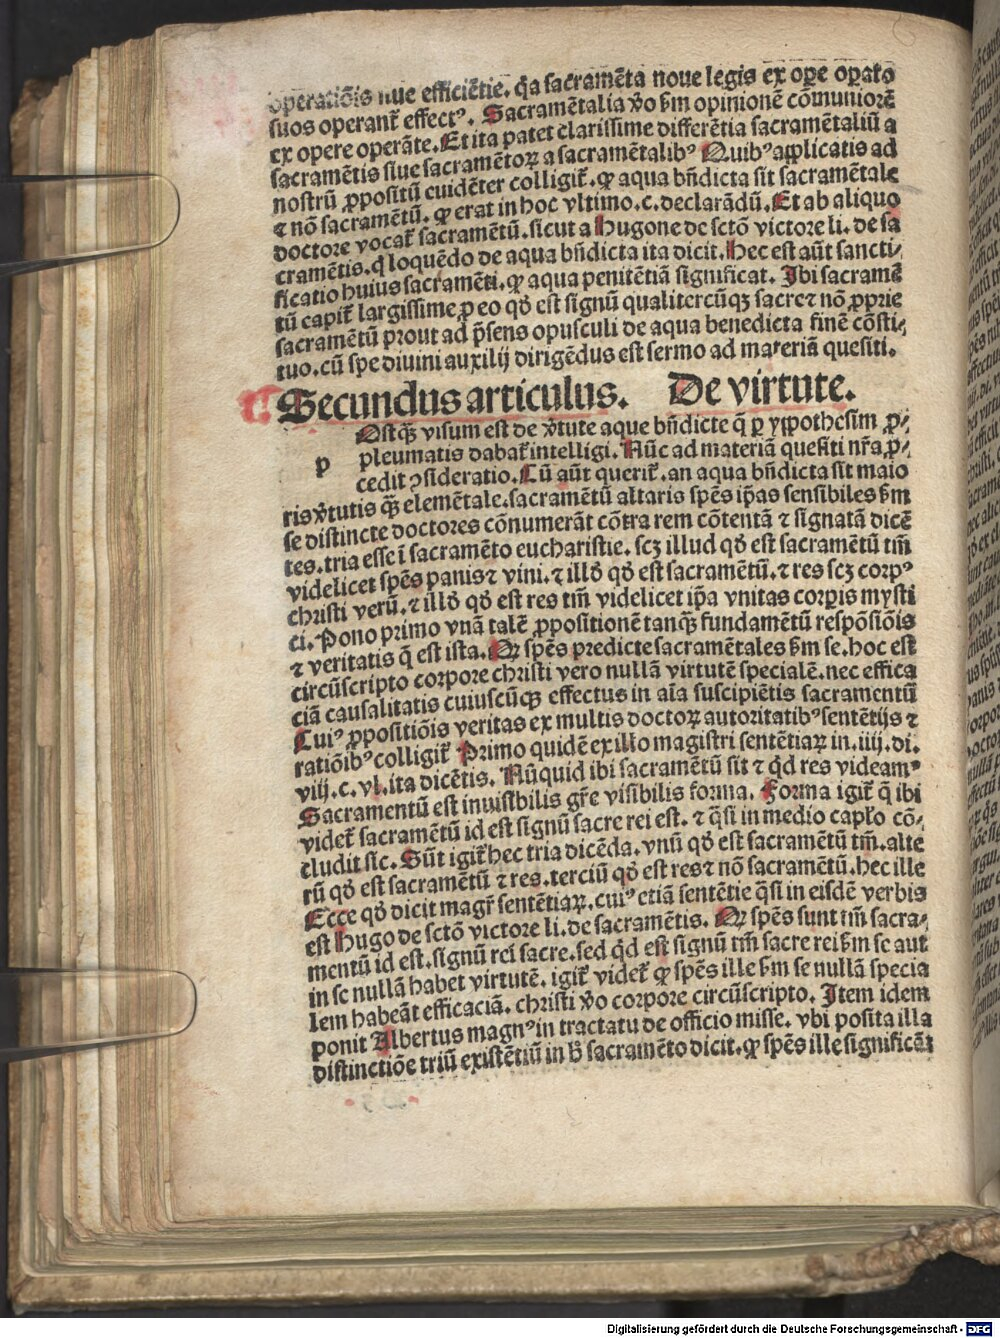 operatiōis siue efficiētie. q̄a sacramēta noue legis ex oꝑe oꝑato
suos operant̄ effectꝰ. Sacramētalia v̓o ẜm opinionē cōmuniorē
ex opere operāte. Et ita patet clarissime differētia sacramētaliū a
sacramētis siue sacramētoꝝ a sacramētalibꝰ Quibꝰ applicatis ad
nostrū ꝓpositū euidēter colligit̄. ꝙ aqua bn̄dicta sit sacramētale
⁊ nō sacramētū. ꝙ erat in hoc vltimo. c. declarādū. Et ab aliquo
doctore vocat̄ sacramētū. sicut a Hugone de sctō victore li. de sa
cramētis. q̇ loquēdo de aqua bn̄dicta ita dicit. Hec est aūt sancti⸗
ficatio huius sacramēti. ꝙ aqua penitētiā significat. Ibi sacramē
tū capit̄ largissime ꝓ eo qd̓ est signū qualitercūqꝫ sacre ⁊ nō ꝓprie
sacramētū prout ad p̄sens opusculi de aqua benedicta finē cōsti⸗
tuo. cū spe diuini auxilij dirigēdus est sermo ad materiā quesiti.
Secundus articulus. De virtute.
p Ostqꝫ̄ visum est de v̓tute aque bn̄dicte q̄ ꝑ ypothesim ꝓ⸗
pleumatis dabat̄ intelligi. Nūc ad materiā quesiti nr̄a ꝓ⸗
cedit ꝯsideratio. Cū aūt querit̄. an aqua bn̄dicta sit maio
ris v̓tutis qꝫ̄ elemētale. sacramētū altaris spēs ip̄as sensibiles ẜm
se distincte doctores cōnumerāt cōtra rem cōtentā ⁊ signatā dicē
tes. tria esse ī sacramēto eucharistie. scꝫ illud qd̓ est sacramētū tm̄
videlicet spēs panis ⁊ vini. ⁊ illd̓ qd̓ est sacramētū. ⁊ res scꝫ corpꝰ
christi verū. ⁊ illd̓ qd̓ est res tm̄ videlicet ip̄a vnitas corꝑis mysti
ci. Pono primo vnā talē ꝓpositionē tanqꝫ̄ fundamētū respōsiōis
⁊ veritatis q̄ est ista. Qꝛ spēs predicte sacramētales ẜm se. hoc est
circūscripto corpore christi vero nullā virtutē specialē. nec effica
ciā causalitatis cuiuscūqꝫ effectus in aīa suscipiētis sacramentū
Cuiꝰ ꝓpositiōis veritas ex multis doctoꝝ autoritatibꝰ sentētijs ⁊
ratiōibꝰ colligit̄ Primo quidē ex illo magistri sentētiaꝝ in. iiij. di.
viij. c. vl. ita dicētis. Nūquid ibi sacramētū sit ⁊ q̇d res videamꝰ
Sacramentū est inuisibilis gr̄e visibilis forma. Forma igit̄ q̄ ibi
videt̄ sacramētū id est signū sacre rei est. ⁊ q̄si in medio capl̓o cō⸗
cludit sic. Sūt igit̄ hec tria dicēda. vnū qd̓ est sacramētū tm̄. alte
rū qd̓ est sacramētū ⁊ res. terciū qd̓ est res ⁊ nō sacramētū. hec ille
Ecce qd̓ dicit magr̄ sentētiaꝝ. cuiꝰ etiā sentētie q̄si in eisdē verbis
est Hugo de sctō victore li. de sacramētis. Qꝛ spēs sunt tm̄ sacra⸗
mentū id est. signū rei sacre. sed q̇d est signū tm̄ sacre rei ẜm se aut
in se nullā habet virtutē. igit̄ videt̄ ꝙ spēs ille ẜm se nullā specia
lem habeāt efficaciā. christi v̓o corpore circūscripto. Item idem
ponit Albertus magnꝰ in tractatu de officio misse. vbi posita illa
distinctiōe triū existētiū in h̓ sacramēto dicit. ꝙ spēs ille significāt
Digitalisierung gefördert durch die Deutsche Forschungsgemeinschaft - DFG